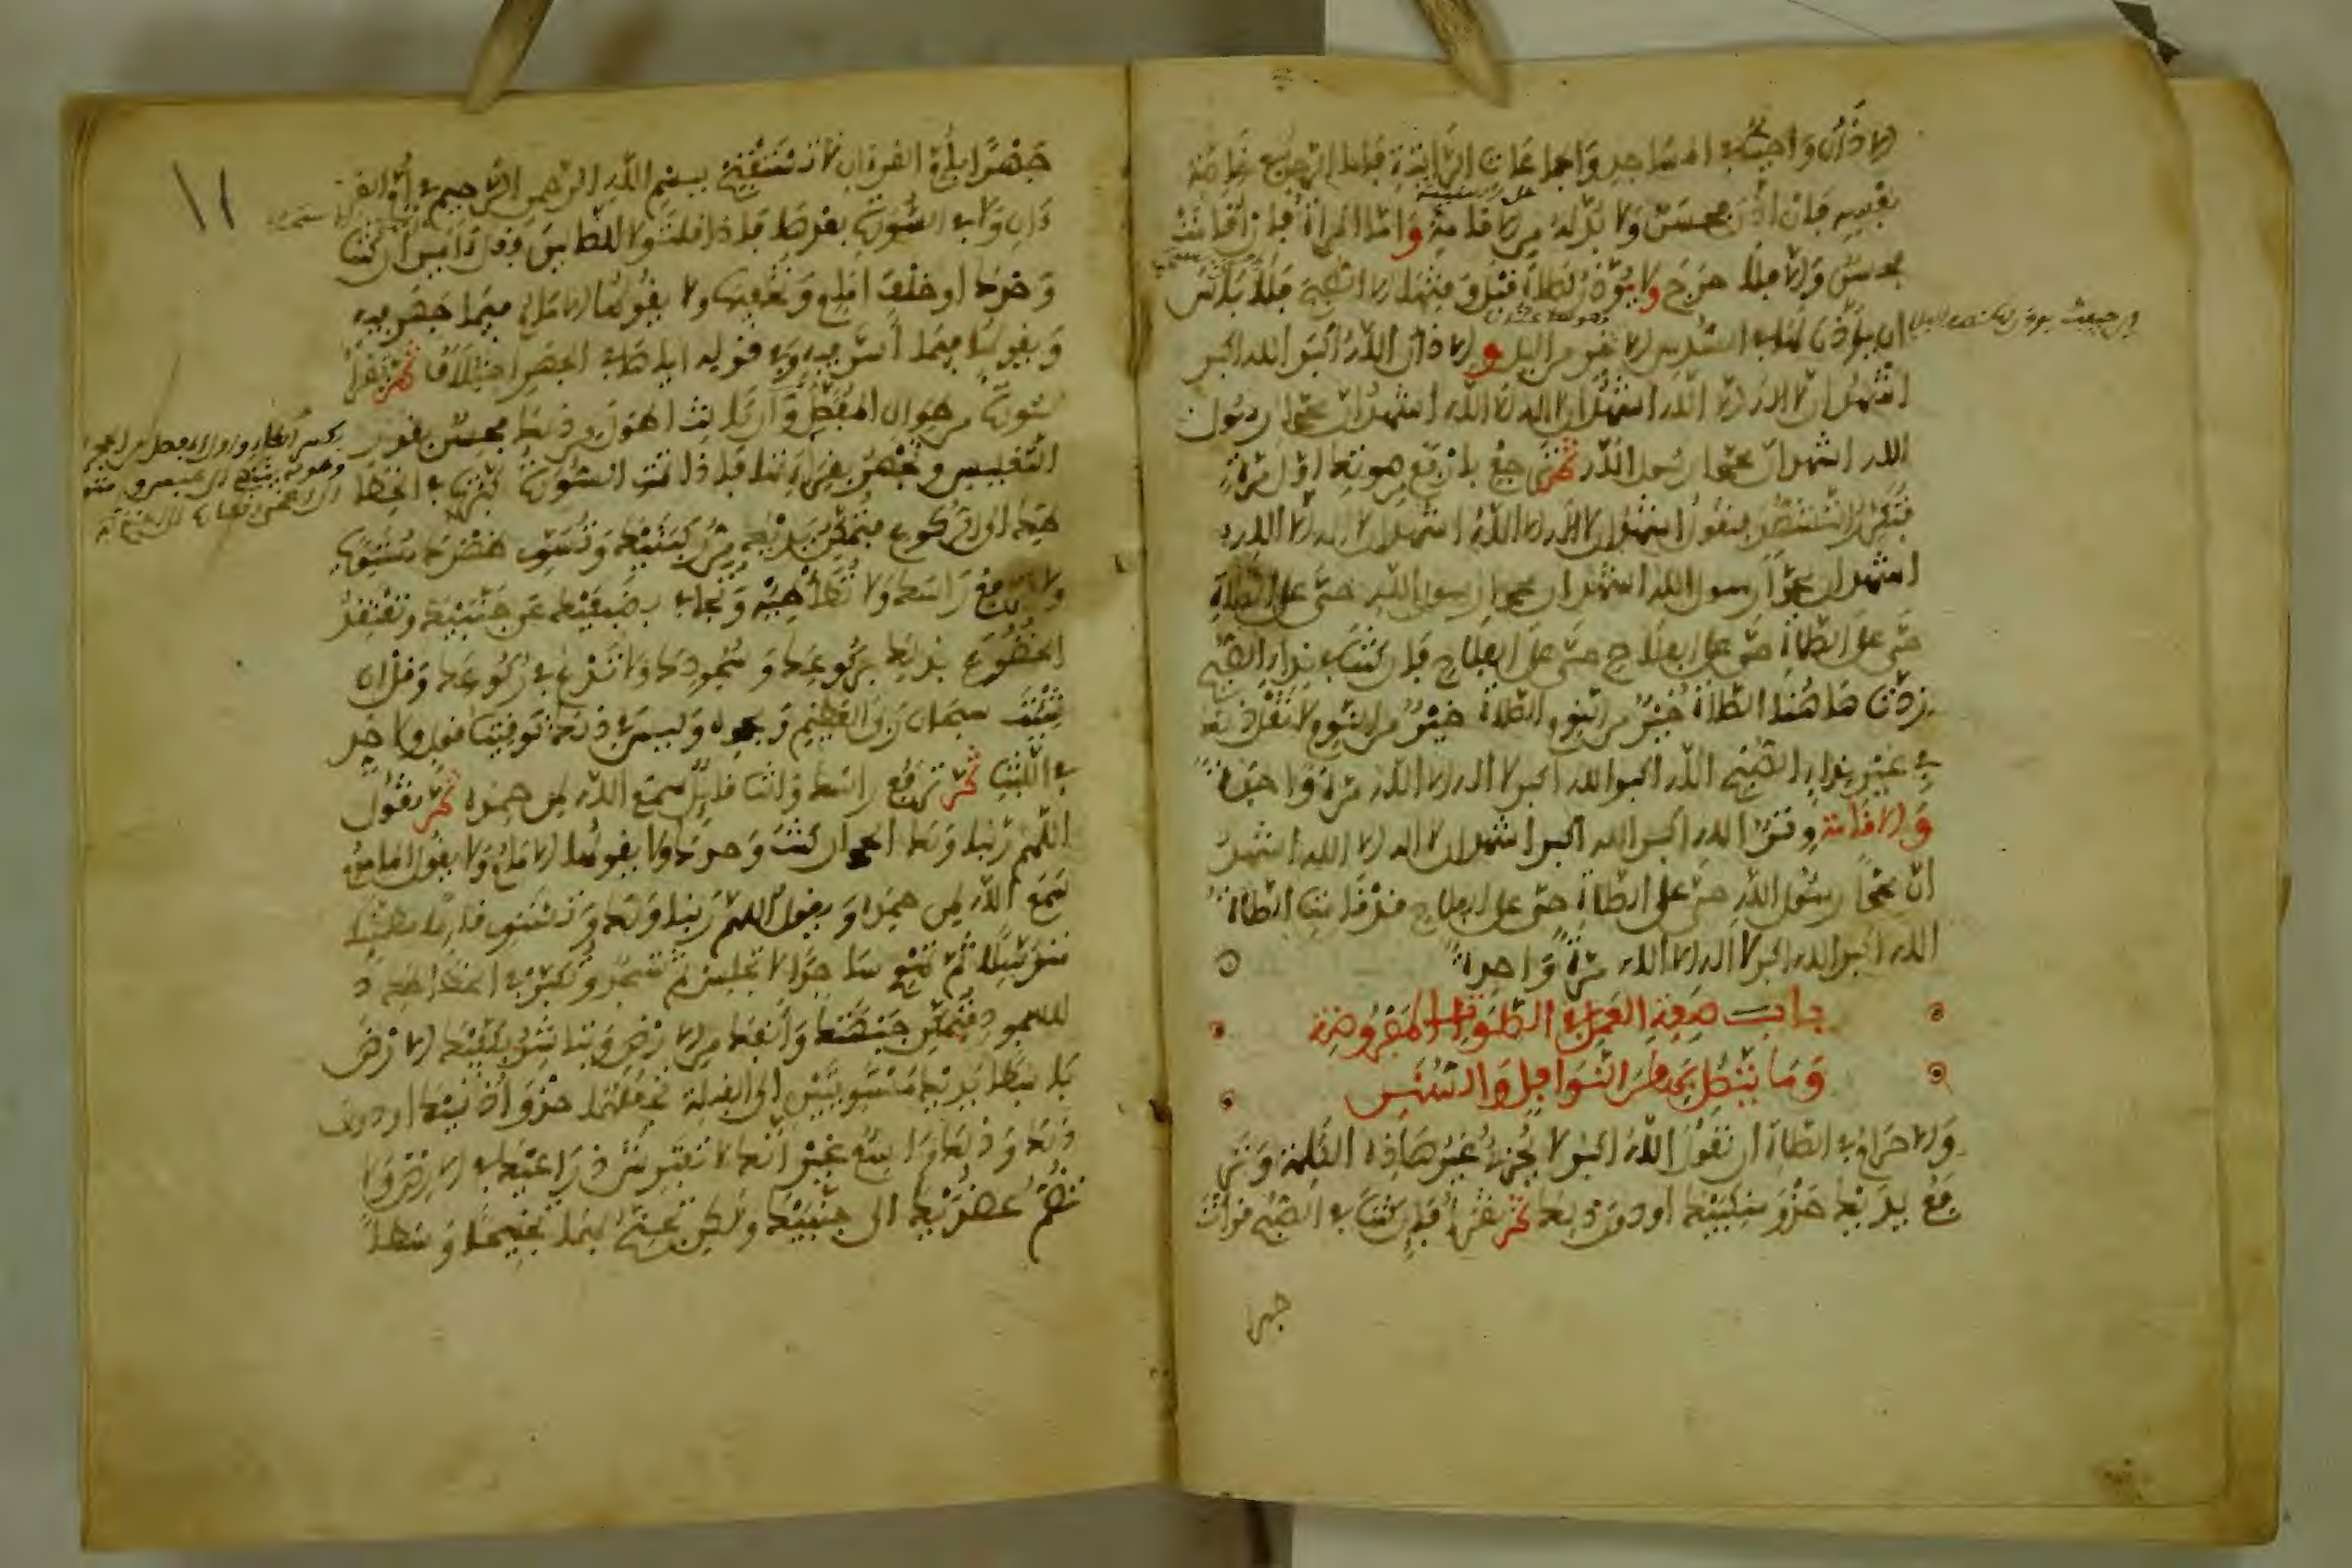 الاذان واجب في المساجد والجماعات الراتبة فاما الرجل في خاصة
نفسه فان اذن فحسن ولا بد له من الاقامة واما المراة فان اقامت
فحسن والا فلا حرج ولا يؤذن لصلاة قبل وقتها الا الصبح فلا باس
ان يؤذن لها في السدس الاخير من الليل والاذان الله اكبر الله اكبر
اشهد ان لا اله الا الله اشهد ان لا اله الا الله اشهد ان محمدا رسول
الله اشهد ان محمدا رسول الله ثم ترجع بارفع من صوتك اول مرة
فتكرر التشهد فتقول اشهد ان لا اله الا الله اشهد ان لا اله الا الله
اشهد ان محمدا رسول الله اشهد ان محمدا رسول الله حي على الصلاة
حي على الصلاة حي على الفلاح حي على الفلاح فان كنت في نداء الصبح
زدت هاهنا الصلاة خير من النوم الصلاة خير من النوم لا تقل ذلك
في غير نداء الصبح الله اكبر الله اكبر لا اله الا الله مرة واحدة
والاقامة وتر الله اكبر الله اكبر اشهد ان لا اله الا الله اشهد
ان محمدا رسول الله حي على الصلاة حي على الفلاح قد قامت الصلاة
الله اكبر الله اكبر لا اله الا الله مرة واحدة
باب صفة العمل في الصلوات المفروضة
وما يتصل بها من النوافل والسنن
والاحرام في الصلاة ان تقول الله اكبر لا يجزئ غير هاذه الكلمة وتر
فع يديك حذو منكبيك او دون ذلك ثم تقرأ فان كنت في الصبح قرات
جهرا
جهرا بام القرءان لا تستفتح ببسم الله الرحمن الرحيم في ام القر
ءان ولا في السورة بعدها فاذا قلت ولا الضالين فقل ءامين ان كنت
وحدك او خلف امام وتخفيها ولا يقولها الامام فيما جهر فيه
ويقولها فيما اسر فيه وفي قوله اياها في الجهر اختلاف ثم تقرأ
سورة من طوال المفصل وان كانت اطول من ذلك فحسن بقدر
التغليس وتجهر بقراءتها فاذا تمت السورة كبرت في انحطا
طك الى الركوع فتمكن يديك من ركبتيك وتسوي ظهرك مستويا
ولا ترفع راسك ولا تطأطئه وتجافي بضبعيك عن جنبيك وتعتقد
الخضوع بذلك بركوعك وسجودك ولا تدع في ركوعك وقل ان
شئت سبحان ربي العظيم وبحمده وليس في ذلك توقيت قول ولا حد
في اللبث ثم ترفع راسك وانت قائل سمع الله لمن حمده ثم تقول
اللهم ربنا ولك الحمد ان كنت وحدك ولا يقولها الامام ولا يقول الماموم
سمع الله لمن حمده ويقول اللهم ربنا ولك الحمد وتستوي قائما مطمئنا
مترسلا ثم تهوي ساجدا لا تجلس ثم تسجد وتكبر في انحطاطك
للسجود فتمكن جبهتك وانفك من الارض وتباشر بكفيك الارض
باسطا يديك مستويتين الى القبلة تجعلهما حذو اذنيك او دون
ذلك وذلك واسع غير انك لا تفترش ذراعيك في الارض ولا
تضم عضديك الى جنبيك ولكن تجنح بهما تجنيحا وسطا